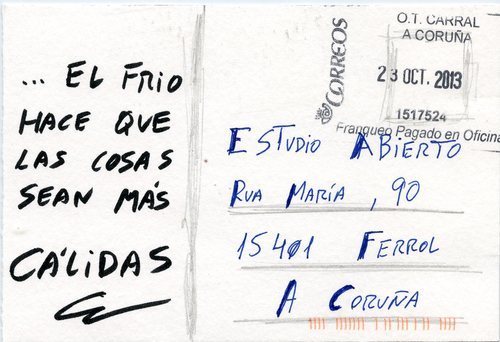 ... EL FRIO
HACE QUE
LAS COSAS
SEAN MÁS
CÁLIDAS
CORREOS
O.T. CARRAL
A CORUÑA
23 OCT. 2013
1517524
Franqueo Pagado en Oficina
ESTUDIO ABIERTO
RUA MARÍA, 90
15401 FERROL
A CORUÑA